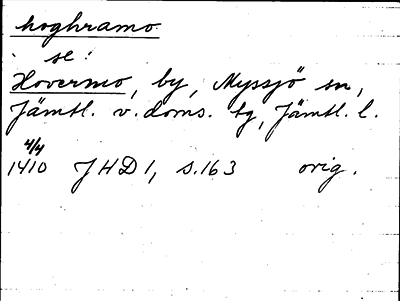 hoghramo
se:
Hovermo, by, Myssjö sn,
Jämtl. v. doms. tg, Jämtl. l.
4/4
1410 JHD1, s.163 orig.